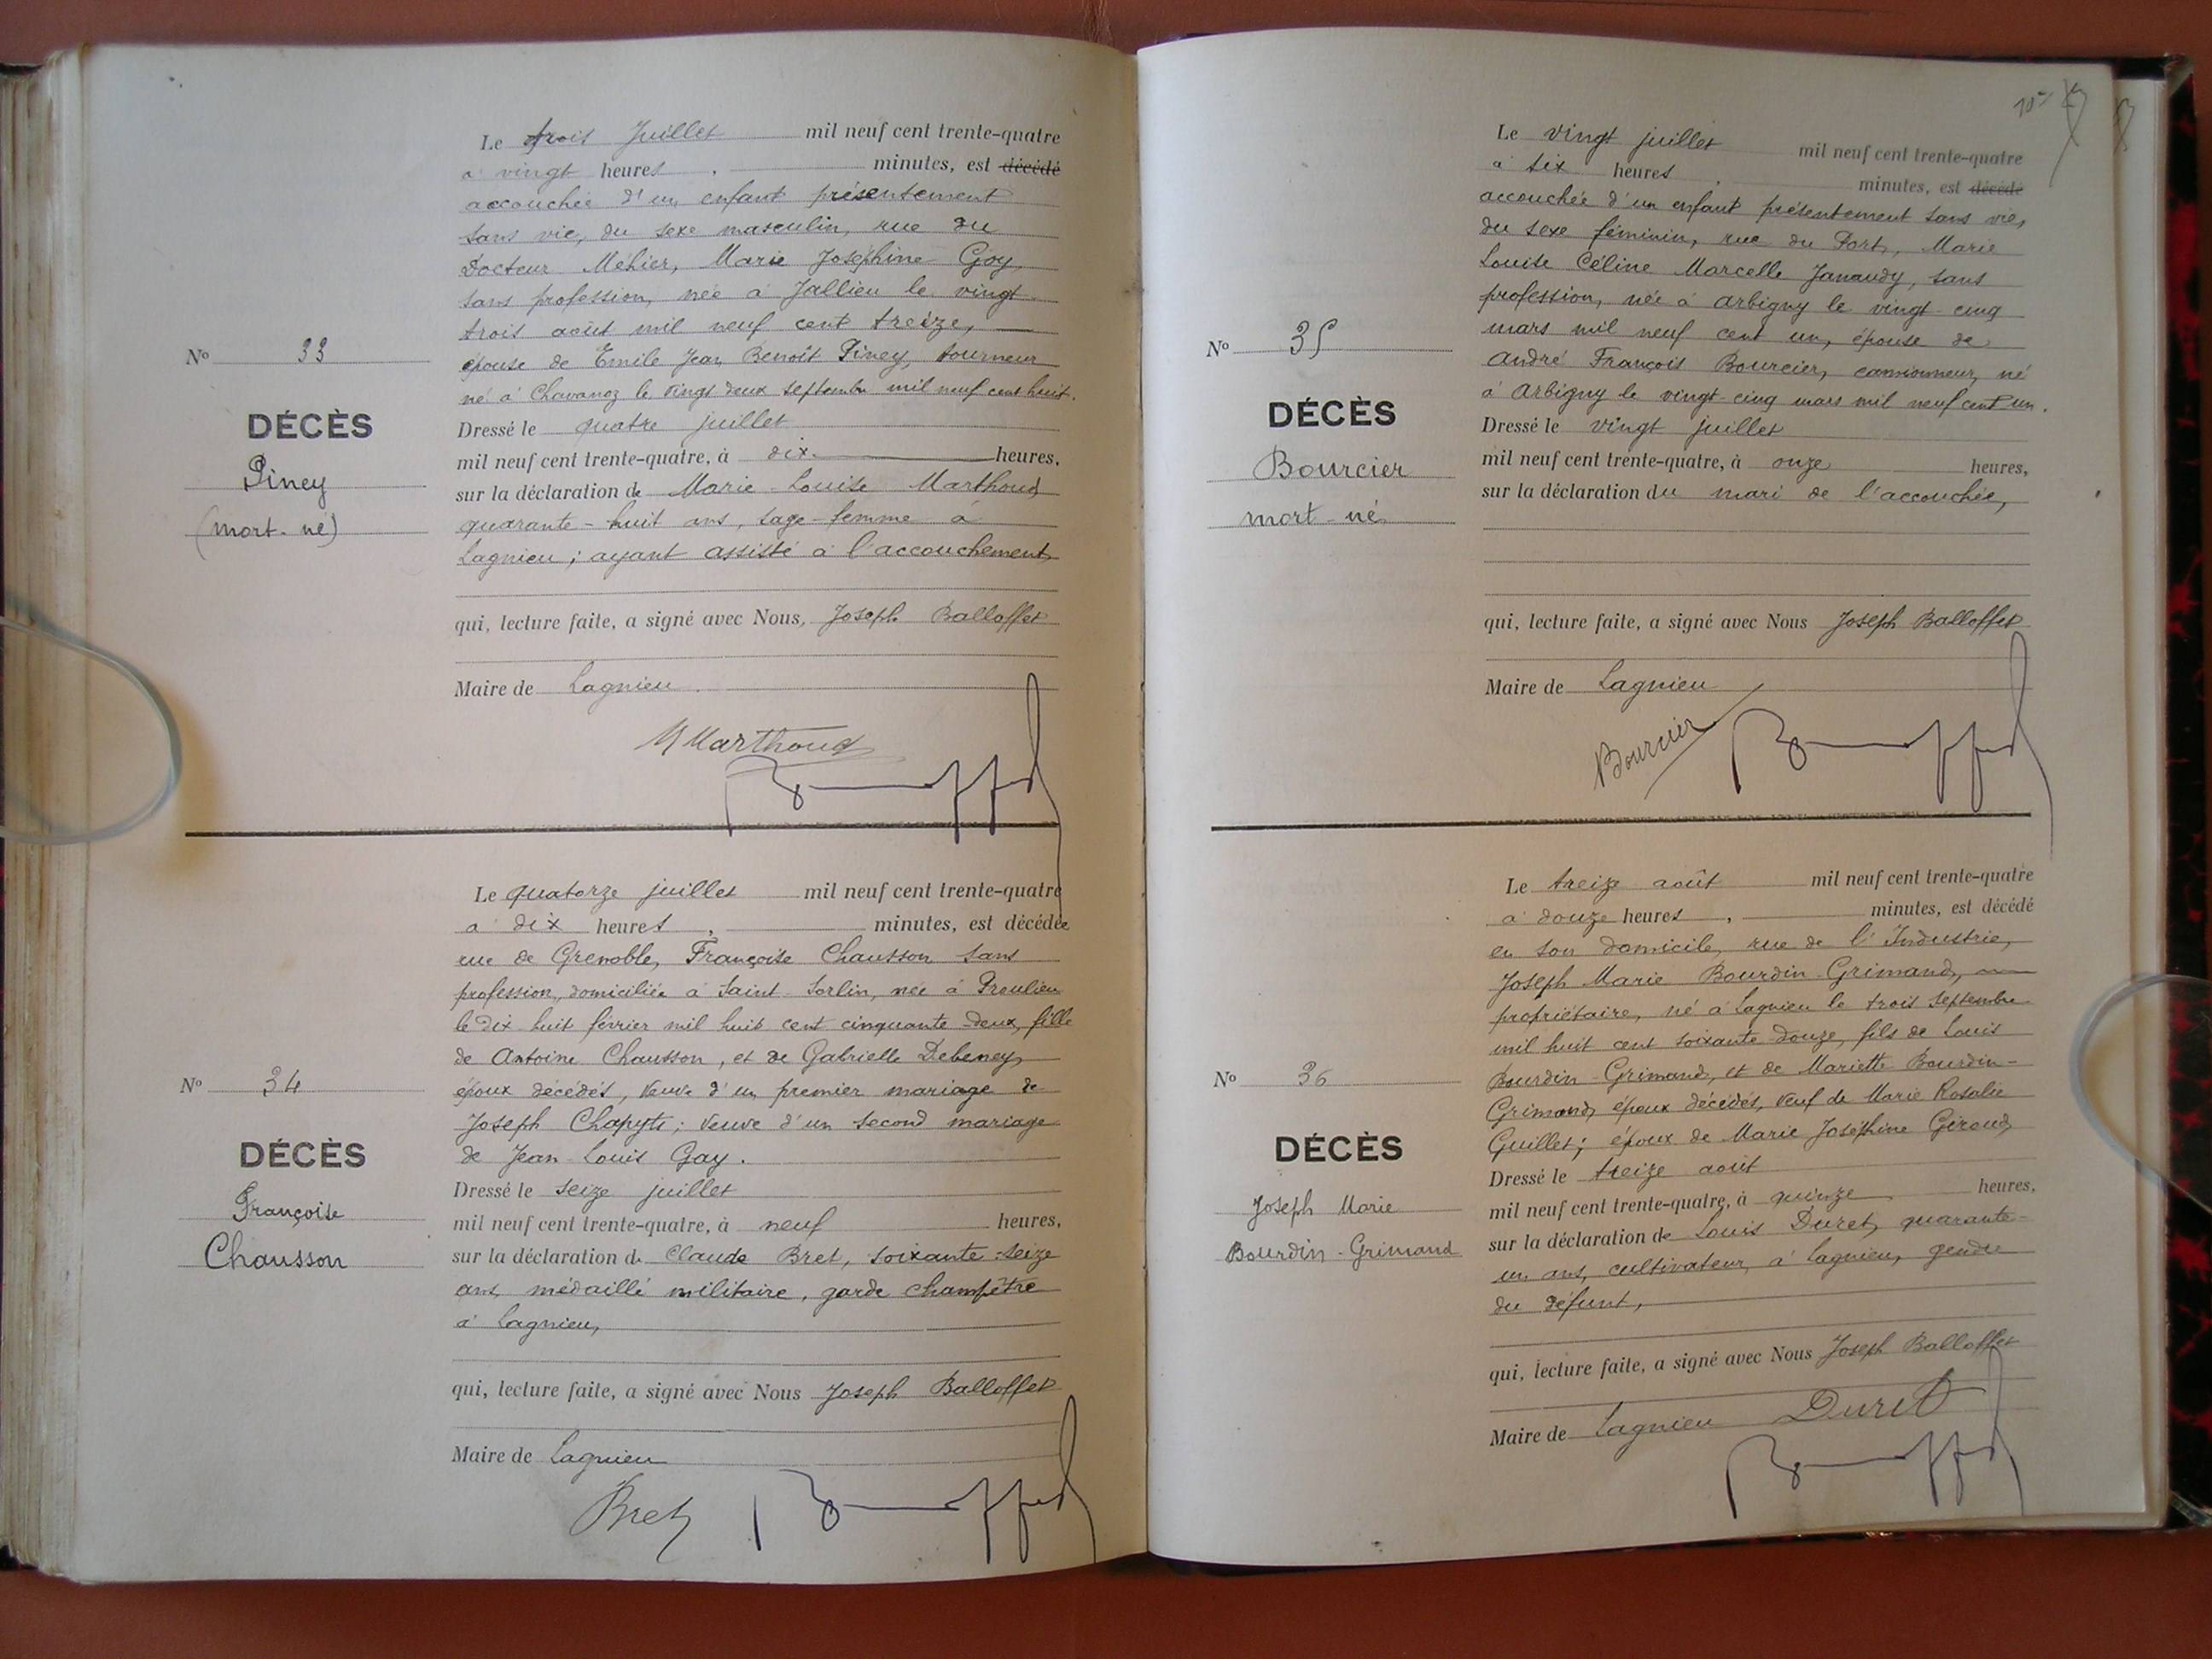 Le trois Juillet mil neuf cent trente-quatre
à vingt heures , minutes, est décédé
accouchée d'un enfant présentement
sans vie, du sexe masculin, rue du
Docteur Méhier, Marie Joséphine Goy,
sans profession, née à Jallieu le vingt
trois août mil neuf cent treize,
épouse de Emile Jean Benoît Piney, tourneur
né à Chavanoz le vingt deux septembre mil neuf cent huit.
N° 33
DÉCÈS
Piney
(mort-né)
Dressé le quatre juillet
mil neuf cent trente-quatre, à dix heures,
sur la déclaration de Marie-Louise Marthoud
quarante-huit ans, sage-femme à
Lagnieu; ayant assisté à l'accouchement,
qui, lecture faite, a signé avec Nous, Joseph Balloffet
Maire de Lagnieu.
M Marthoud
Le quatorze juillet mil neuf cent trente-quatre
à dix heures , minutes, est décédée
rue de Grenoble, Françoise Chausson sans
profession, domiciliée à Saint-Sorlin, née à Proulieu
le dix huit février mil huit cent cinquante-deux, fille
de Antoine Chausson, et de Gabrielle Debeney,
époux décédés, veuve d'un premier mariage de
Joseph Chapyte; veuve d'un second mariage
de Jean-Louis Gay.
N° 34
DÉCÈS
Françoise
Chausson
Dressé le seize juillet
mil neuf cent trente-quatre, à neuf heures,
sur la déclaration de Claude Bret, soixante-seize
ans, médaillé militaire, garde champêtre
à Lagnieu,
qui, lecture faite, a signé avec Nous Joseph Balloffet
Maire de Lagnieu
Bret
Le vingt juillet mil neuf cent trente-quatre
à six heures , minutes, est décédé
accouchée d'un enfant présentement sans vie,
du sexe féminin, rue du Port, Marie
Louise Céline Marcelle Janaudy, sans
profession, née à Arbigny le vingt-cinq
mars mil neuf cent un, épouse de
André François Bourcier, camionneur, né
à Arbigny le vingt-cinq mars mil neuf cent un.
N° 35
DÉCÈS
Bourcier
mort-né
Dressé le vingt juillet
mil neuf cent trente-quatre, à onze heures,
sur la déclaration du mari de l'accouchée,
qui, lecture faite, a signé avec Nous Joseph Balloffet
Maire de Lagnieu
Bourcier
Le treize août mil neuf cent trente-quatre
à douze heures , minutes, est décédé
en son domicile, rue de l'Industrie,
Joseph Marie Bourdin-Grimaud,
propriétaire, né à Lagnieu le trois septembre
mil huit cent soixante-douze, fils de Louis
Bourdin-Grimaud, et de Mariette Bourdin-
Grimaud, époux décédés, veuf de Marie Rosalie
Guillet; époux de Marie Joséphine Giroud,
N° 36
DÉCÈS
Joseph Marie
Bourdin-Grimaud
Dressé le treize août
mil neuf cent trente-quatre, à quinze heures,
sur la déclaration de Louis Duret, quarante-
un ans, cultivateur, à Lagnieu, gendre
du défunt,
qui, lecture faite, a signé avec Nous Joseph Balloffet
Maire de Lagnieu
Duret